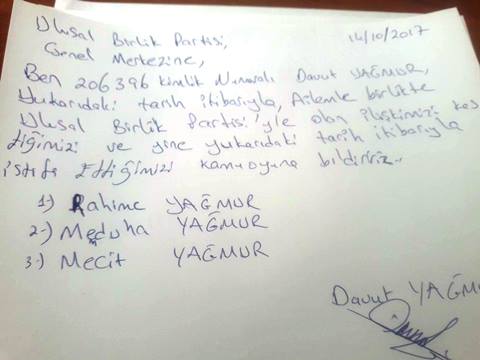 Ulusal Birlik Partisi,
14/10/2017
Genel Merkezine,
Ben 206396 kimlik Numaralı Davut YAĞMUR,
Yukarıdaki tarih itibarıyla, Ailemle birlikte
Ulusal Birlik Partisi'yle olan ilişkimizi kes
tiğimizi ve yine yukarıdaki tarih itibarıyla
istifa Ettiğimizi kamuoyuna bildiririz.
1-) Rahime YAĞMUR
2-) Meduha YAĞMUR
3-) Mecit YAĞMUR
Davut YAĞMU